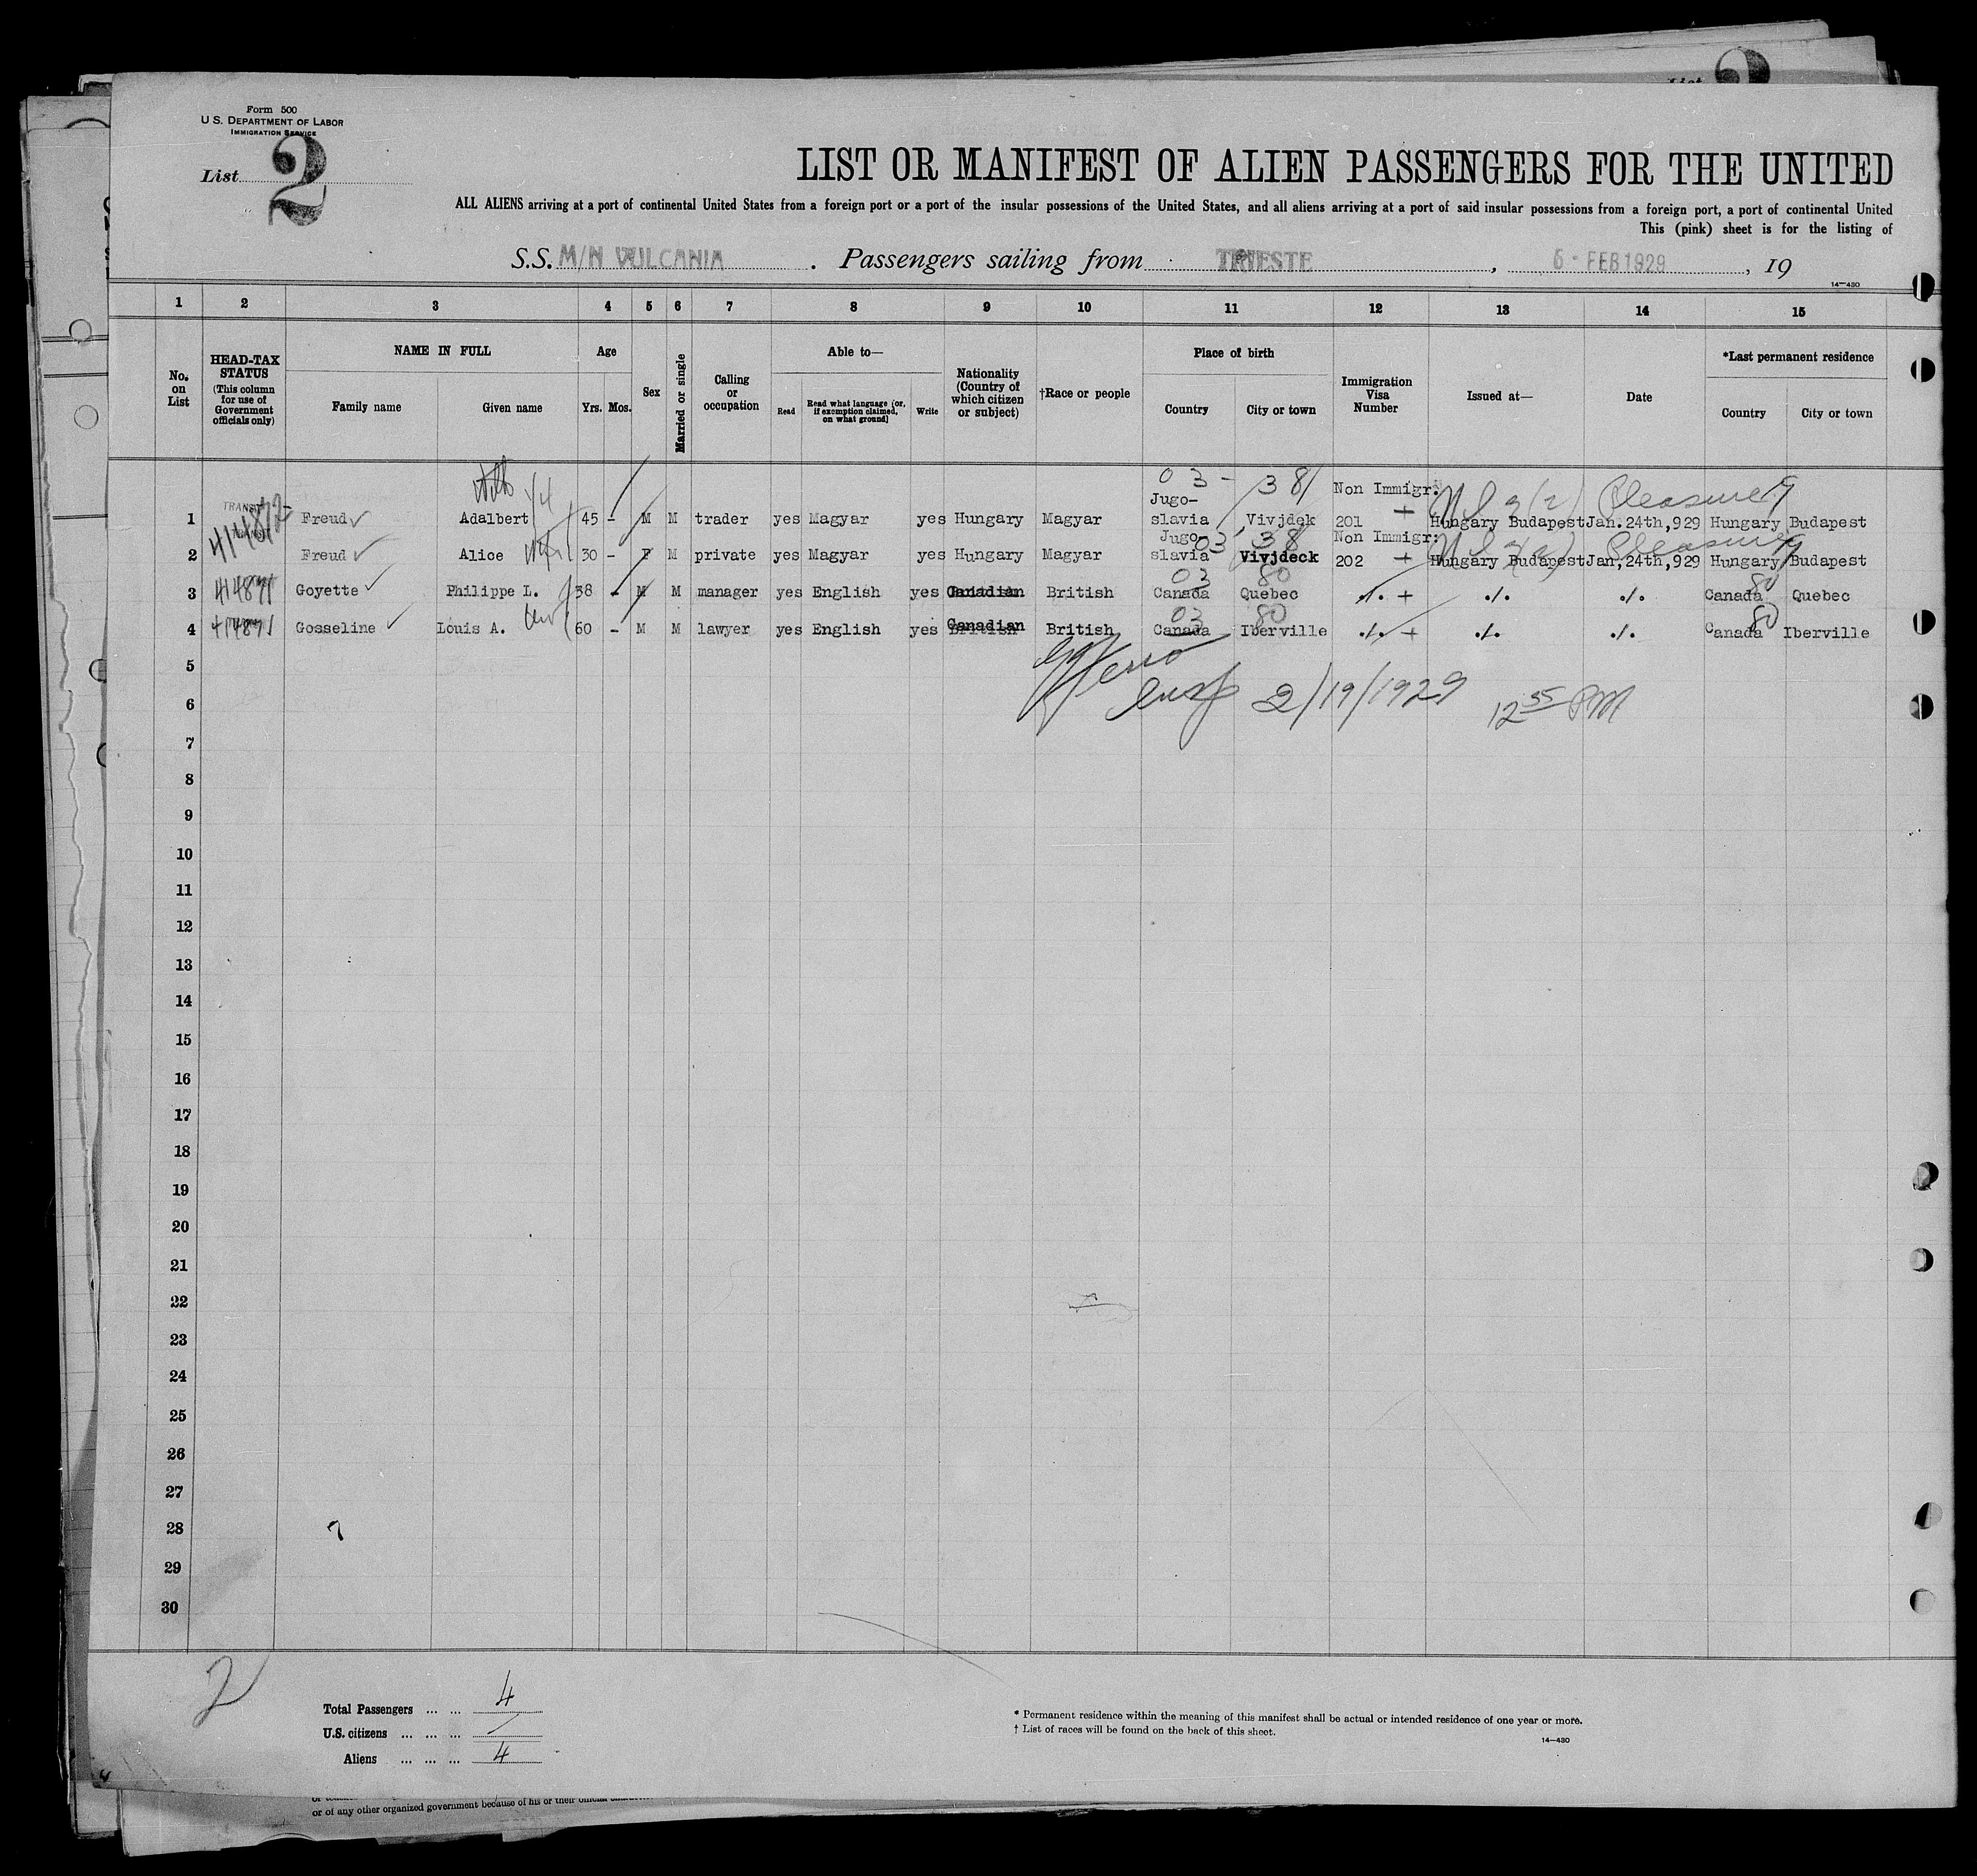 List
Form 500
U.S. DEPARTMENT OF LABOR
IMMIGRATION SERVICE
List 2
LIST OR MANIFEST OF ALIEN PASSENGERS FOR THE UNITED
ALL ALIENS arriving at a port of continental United States from a foreign port or a port of the insular possessions of the United States, and all aliens arriving at a port of said insular possessions from a foreign port, a port of continental United
This (pink) sheet is for the listing of
S.S. M/N VULCANIA. Passengers sailing from TRIESTE, 6 - FEB 1929, 19
14-430
1 2 3 4 5 6 7 8 9 10 11 12 13 14 15
No. on List
HEAD-TAX STATUS (This column for use of Government officials only)
NAME IN FULL
Family name Given name
Age
Yrs. Mos.
Sex
Married or single
Calling or occupation
Able to—
Read Read what language (or, if exemption claimed, on what ground) Write
Nationality (Country of which citizen or subject)
†Race or people
Place of birth
Country City or town
Immigration Visa Number
Issued at—
Date
*Last permanent residence
Country City or town
03 - 38
Jugo- Non Immigr: Pleasure
1 TRANSIT 414872 Freud Adalbert 45 - M M trader yes Magyar yes Hungary Magyar slavia Vivjdek 201 + Hungary Budapest Jan.24th,929 Hungary Budapest
Jugo- 03 38 Non Immigr: Pleasure
2 Freud Alice 30 - F M private yes Magyar yes Hungary Magyar slavia Vivjdeck 202 + Hungary Budapest Jan,24th,929 Hungary Budapest
03 80 80
3 414871 Goyette Philippe L. 38 - M M manager yes English yes Canadian British Canada Quebec ./. + ./. ./. Canada Quebec
03 80 80
4 414871 Gosseline Louis A. 60 - M M lawyer yes English yes Canadian British Canada Iberville ./. + ./. ./. Canada Iberville
5
6
insp 2/19/1929 12 55 PM
7
8
9
10
11
12
13
14
15
16
17
18
19
20
21
22
23
24
25
26
27
28
29
30
2
Total Passengers ... ... 4
U.S. citizens ... ... ... /
Aliens ... ... ... 4
* Permanent residence within the meaning of this manifest shall be actual or intended residence of one year or more.
† List of races will be found on the back of this sheet.
14-430
or of any other organized government because of his or their official